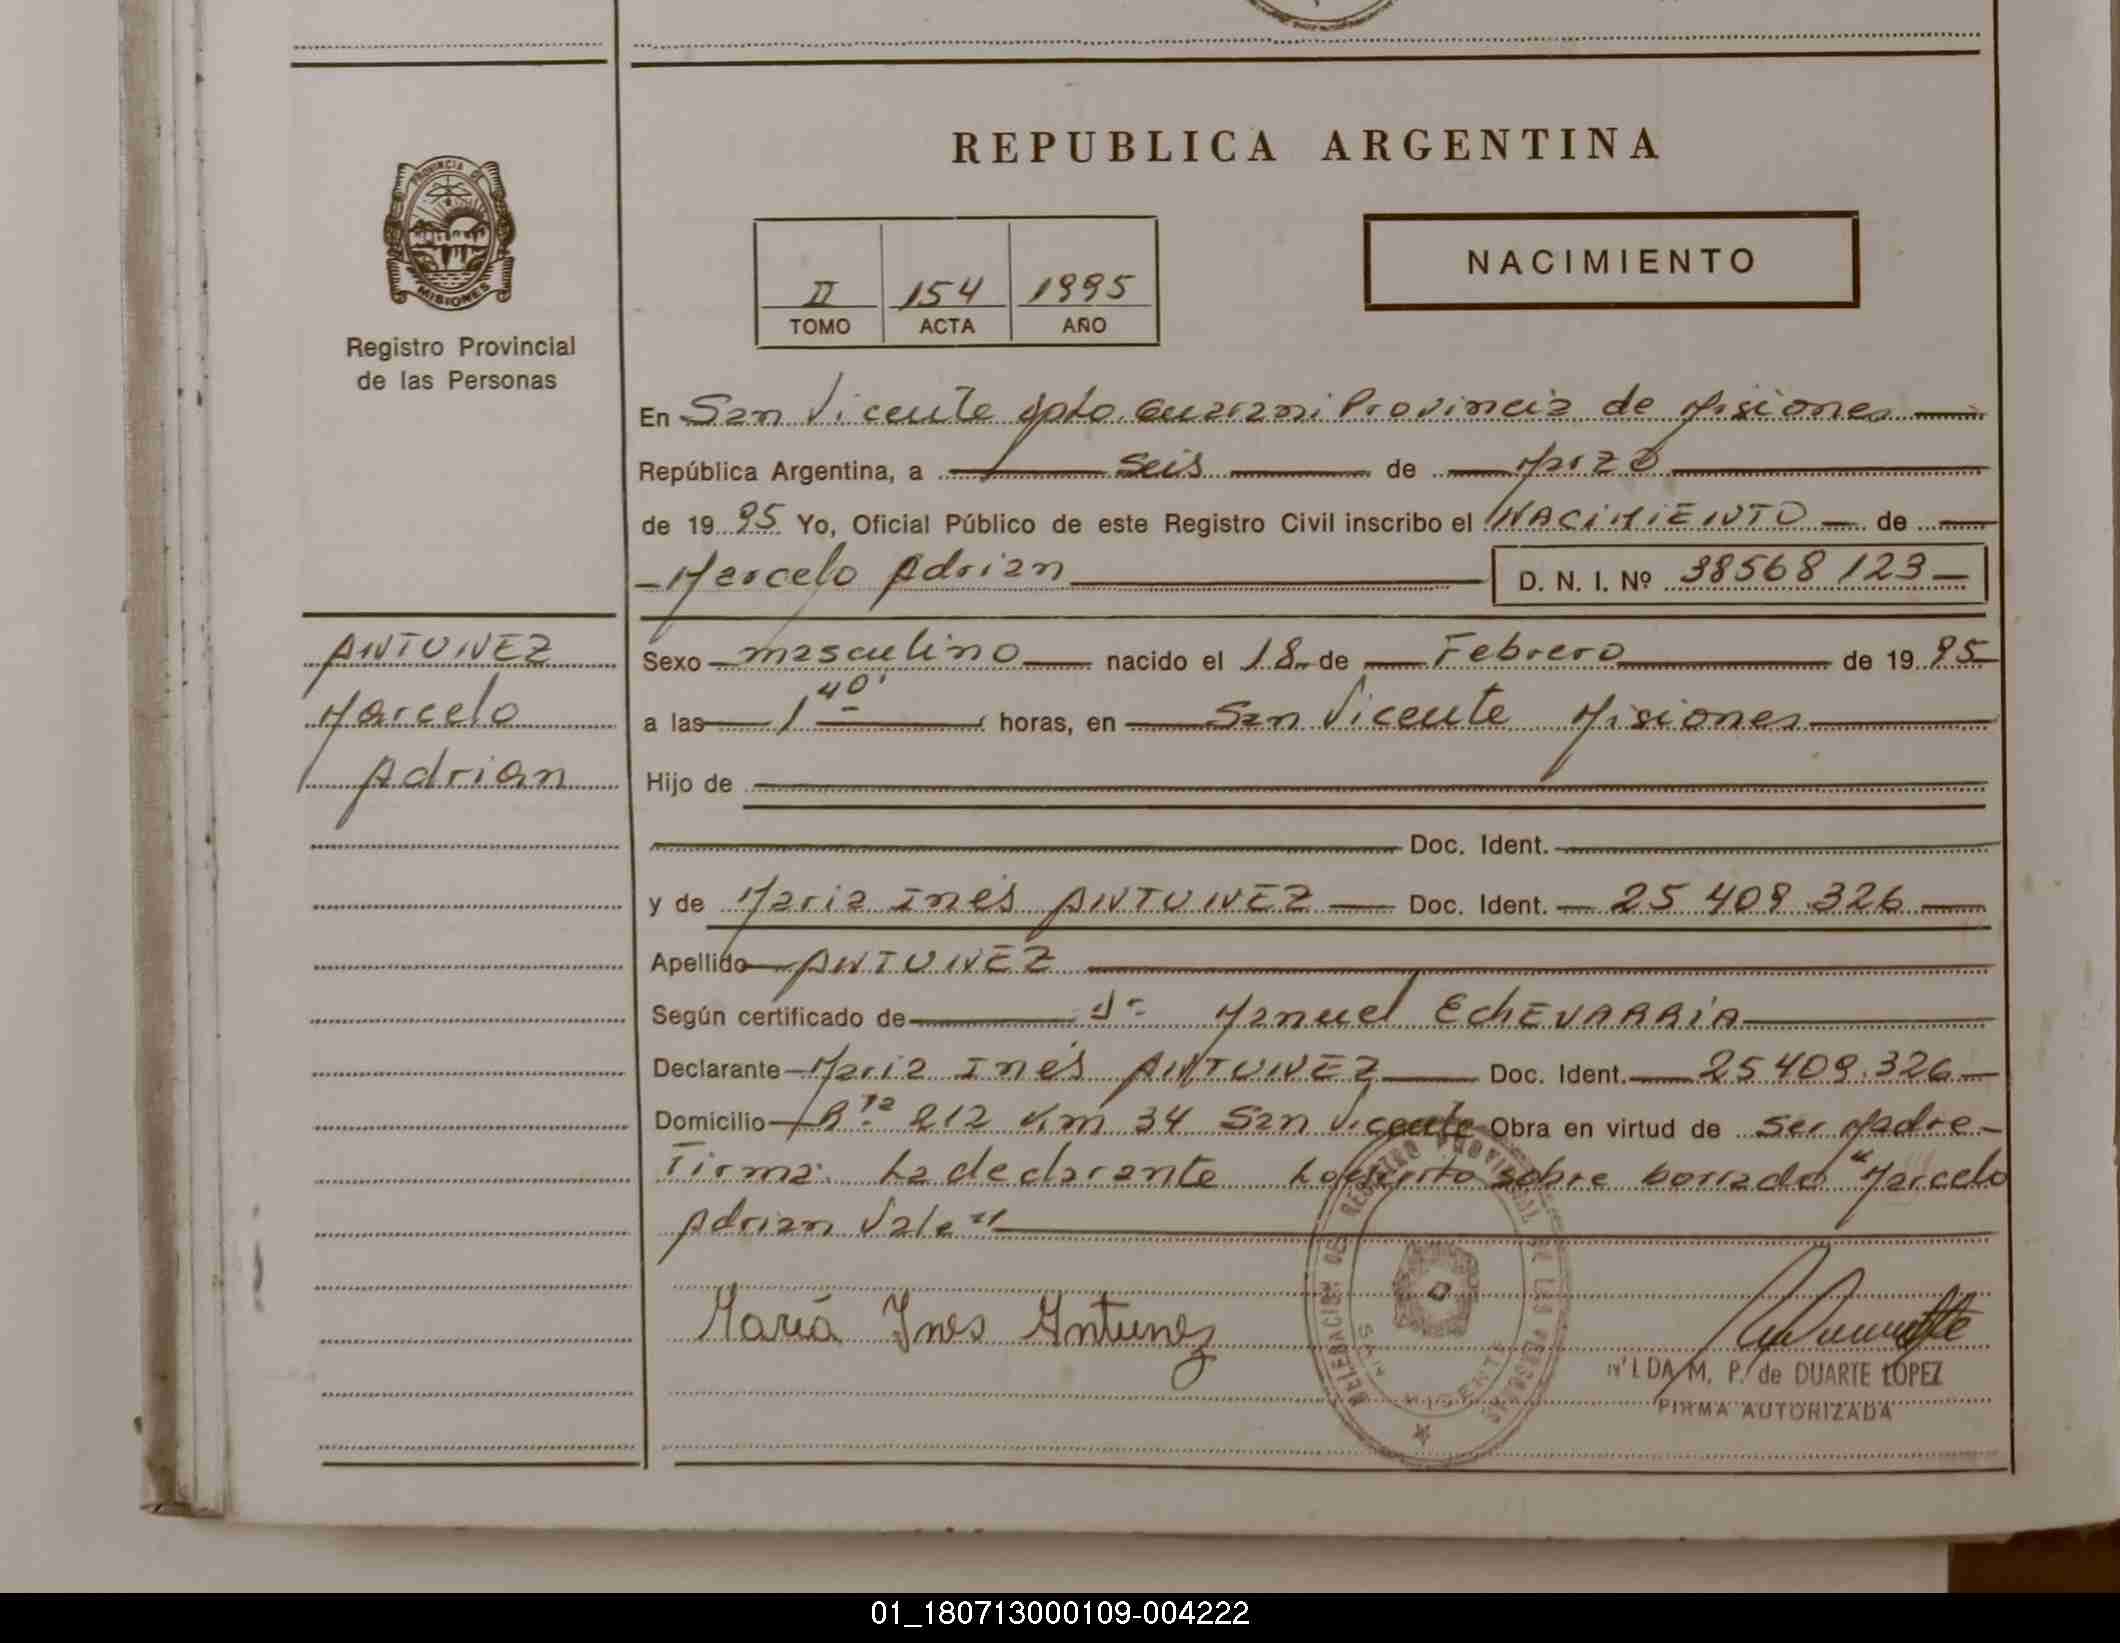 REPUBLICA ARGENTINA
PROVINCIA DE
MISIONES
Registro Provincial
de las Personas
NACIMIENTO
II 154 1995
TOMO ACTA AÑO
En San Vicente Dpto. Guarani Provincia de Misiones
República Argentina, a seis de Marzo
de 1995 Yo, Oficial Público de este Registro Civil inscribo el NACIMIENTO de
Marcelo Adrian D. N. I. Nº 38568123
ANTUNEZ
Marcelo
Adrian
Sexo masculino nacido el 18 de Febrero de 1995
a las 1 40' horas, en San Vicente Misiones
Hijo de
Doc. Ident.
y de Maria Inés ANTUNEZ Doc. Ident. 25 409 326
Apellido ANTUNEZ
Según certificado de Dr Manuel EchEVARRÍA
Declarante Maria Inés ANTUNEZ Doc. Ident. 25 409.326
Domicilio Rta 212 Km 34 San Vicente Obra en virtud de ser Madre
Firma: La declarante Lo escrito sobre borrado "Marcelo
Adrian Vale"
María Ines Antunez
DELEGACION DE REGISTRO PROVINCIAL DE LAS PERSONAS
SAN VICENTE
M. P. de DUARTE LOPEZ
FIRMA AUTORIZADA
01_180713000109-004222